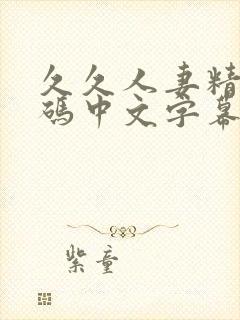 久久人妻精
碼中文字幕
紫童